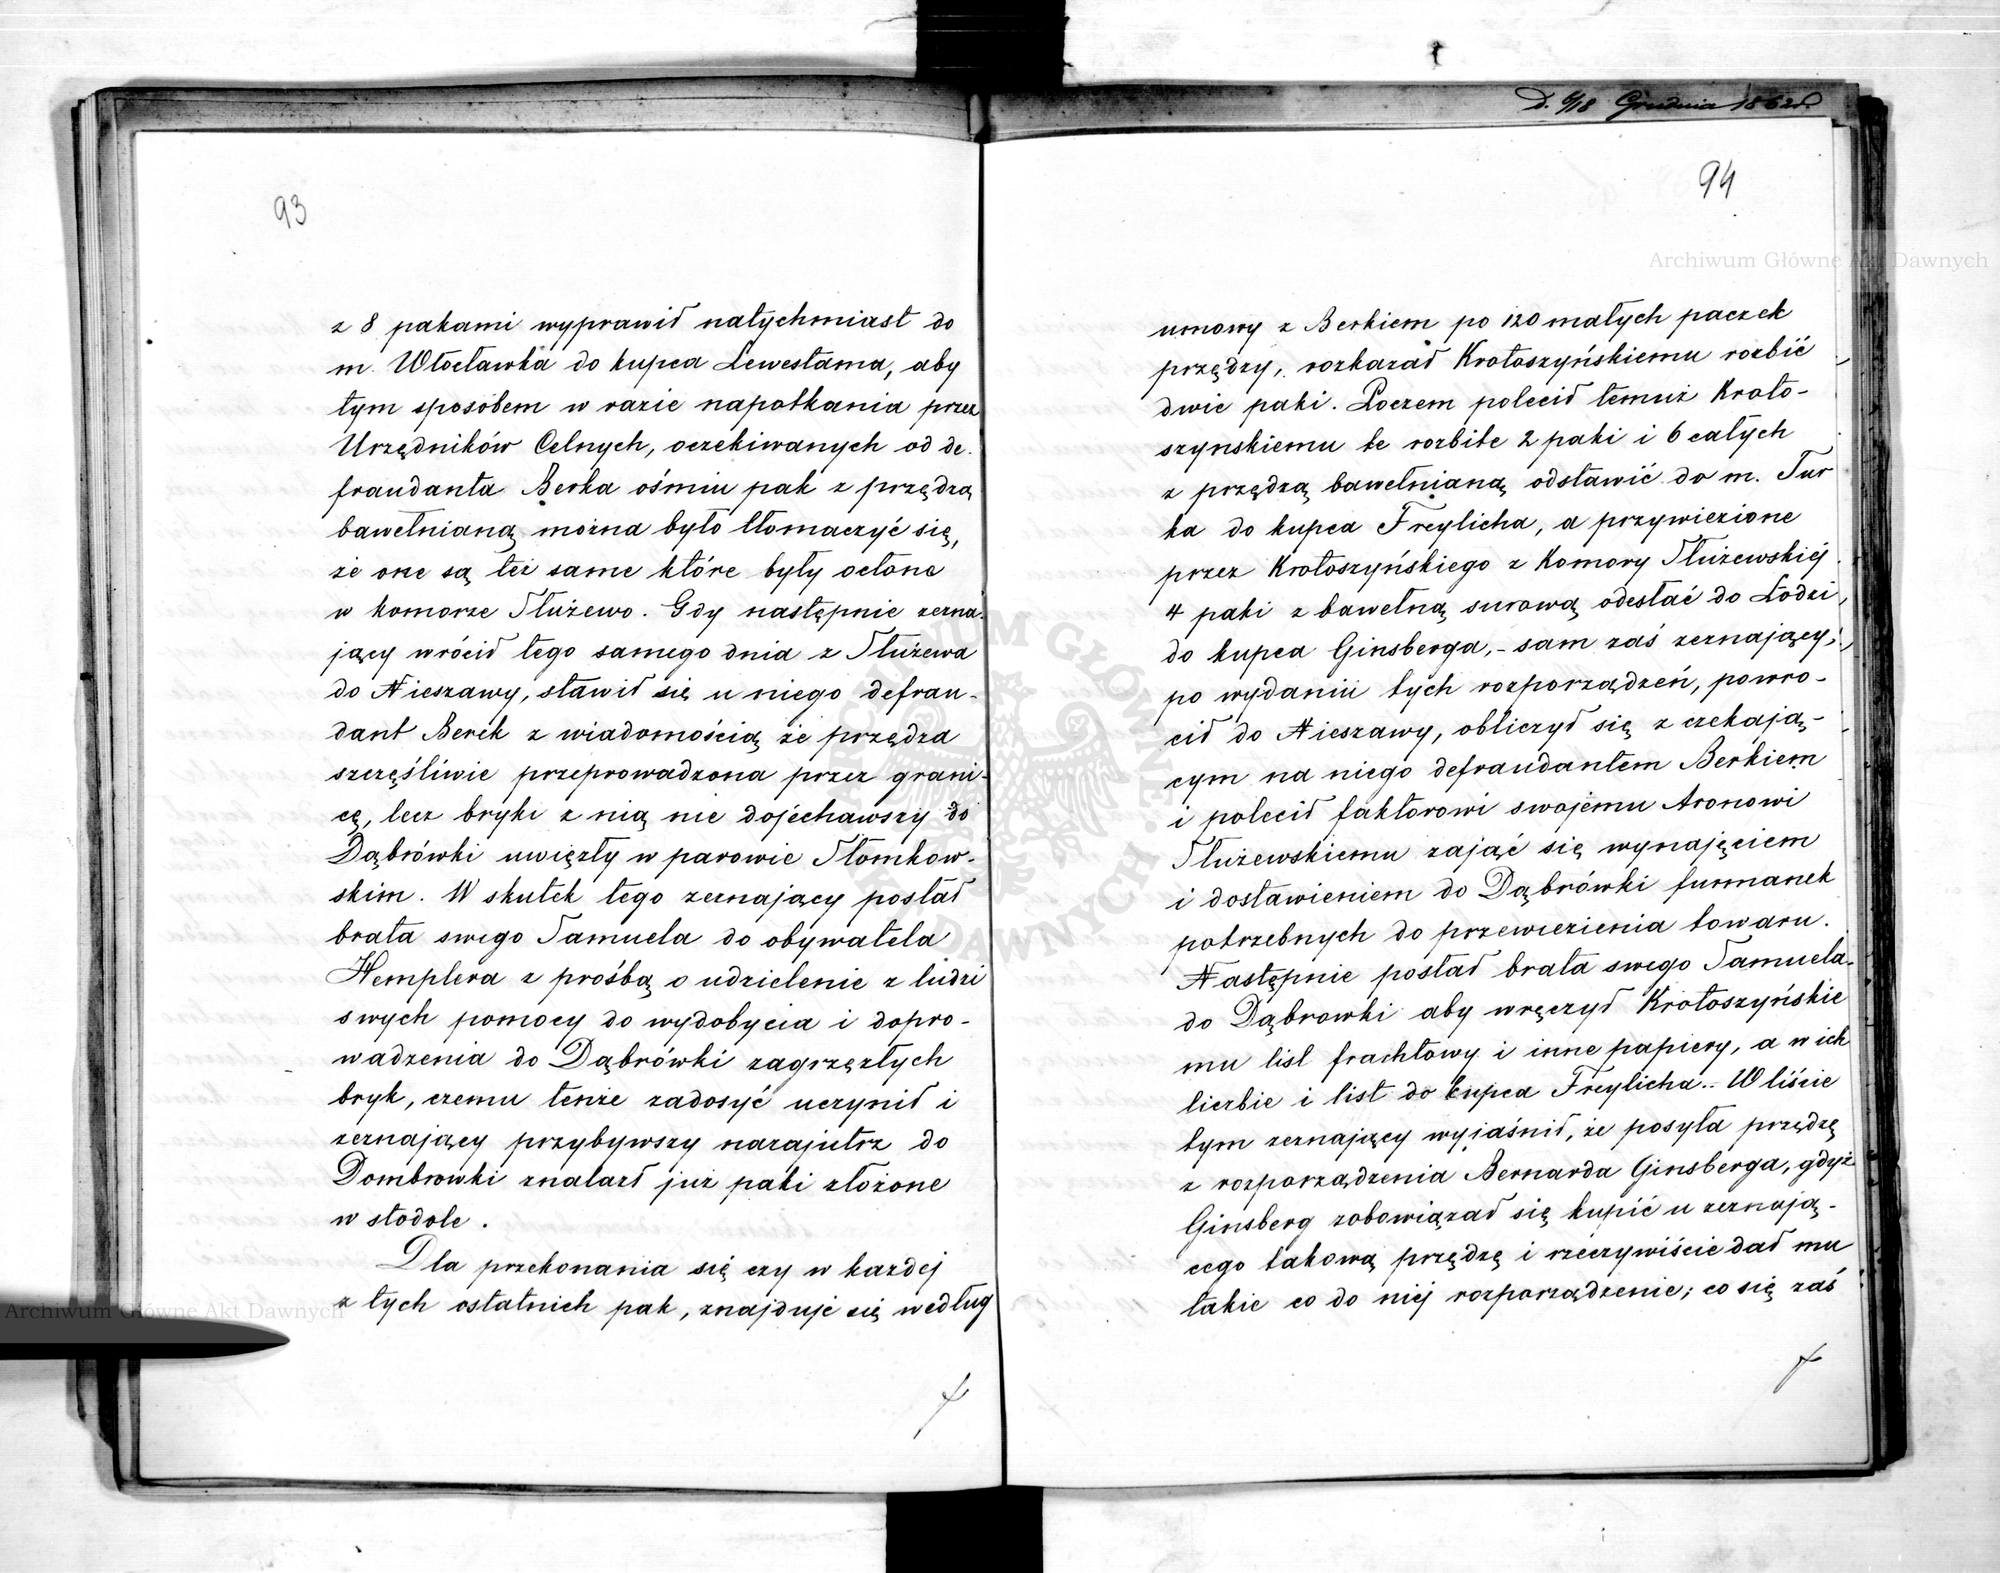 93
z 8 pakami wyprawił natychmiast do
m. Włocławka do kupca Lewestama, aby
tym sposobem w razie napotkania przez
Urzędników Celnych, oczekiwanych od de-
fraudanta Berka ośmiu pak z przędzą
bawełnianą można było tłomaczyć się,
że one są też same które były oclone
w komorze Służewo. Gdy następnie zezna-
jący wrócił tego samego dnia z Służewa
do Nieszawy, stawił się u niego defrau-
dant Berek z wiadomością że przędza
szczęśliwie przeprowadzona przez grani-
cę, lecz bryki z nią nie dojechawszy do
Dąbrówki uwięzły w parowie Słomkow-
skim. W skutek tego zeznający posłał
brata swego Samuela do obywatela
Hemplera z prośbą o udzielenie z ludzi
swych pomocy do wydobycia i dopro-
wadzenia do Dąbrówki zagrzęzłych
bryk, czemu tenże zadosyć uczynił i
zeznający przybywszy nazajutrz do
Dombrowki znalazł już paki złożone
w stodole.
Dla przekonania się czy w każdej
z tych ostatnich pak, znajduje się według
D. 6/18 Grudnia 1862 r.
94
umowy z Berkiem po 120 małych paczek
przędzy, rozkazał Krotoszyńskiemu rozbić
dwie paki. Poczem polecił temuż Kroto-
szynskiemu te rozbite 2 paki i 6 całych
z przędzą bawełnianą odstawić do m. Tur
ka do kupca Freylicha, a przywiezione
przez Krotoszyńskiego z Komory Służewskiej
4 paki z bawełną surową odesłać do Łodzi,
do kupca Ginsberga,- sam zaś zeznający,
po wydaniu tych rozporządzeń, powro-
cił do Nieszawy, obliczył się z czekają-
cym na niego defraudantem Berkiem
i polecił faktorowi swojemu Aronowi
Służewskiemu zająć się wynajęciem
i dostawieniem do Dąbrówki furmanek
potrzebnych do przewiezienia towaru.
Następnie posłał brata swego Samuela
do Dąbrowki aby wręczył Krotoszyńskie
mu list frachtowy i inne papiery, a w ich
liczbie i list do kupca Freylicha.. W liście
tym zeznający wyjaśnił, że posyła przędzę
z rozporządzenia Bernarda Ginsberga, gdyż
Ginsberg zobowiązał się kupić u zeznają-
cego takową przędzę i rzeczywiście dał mu
takie co do niéj rozporządzenie; co się zaś
Archiwum Główne Akt Dawnych
Archiwum Główne Akt Dawnych